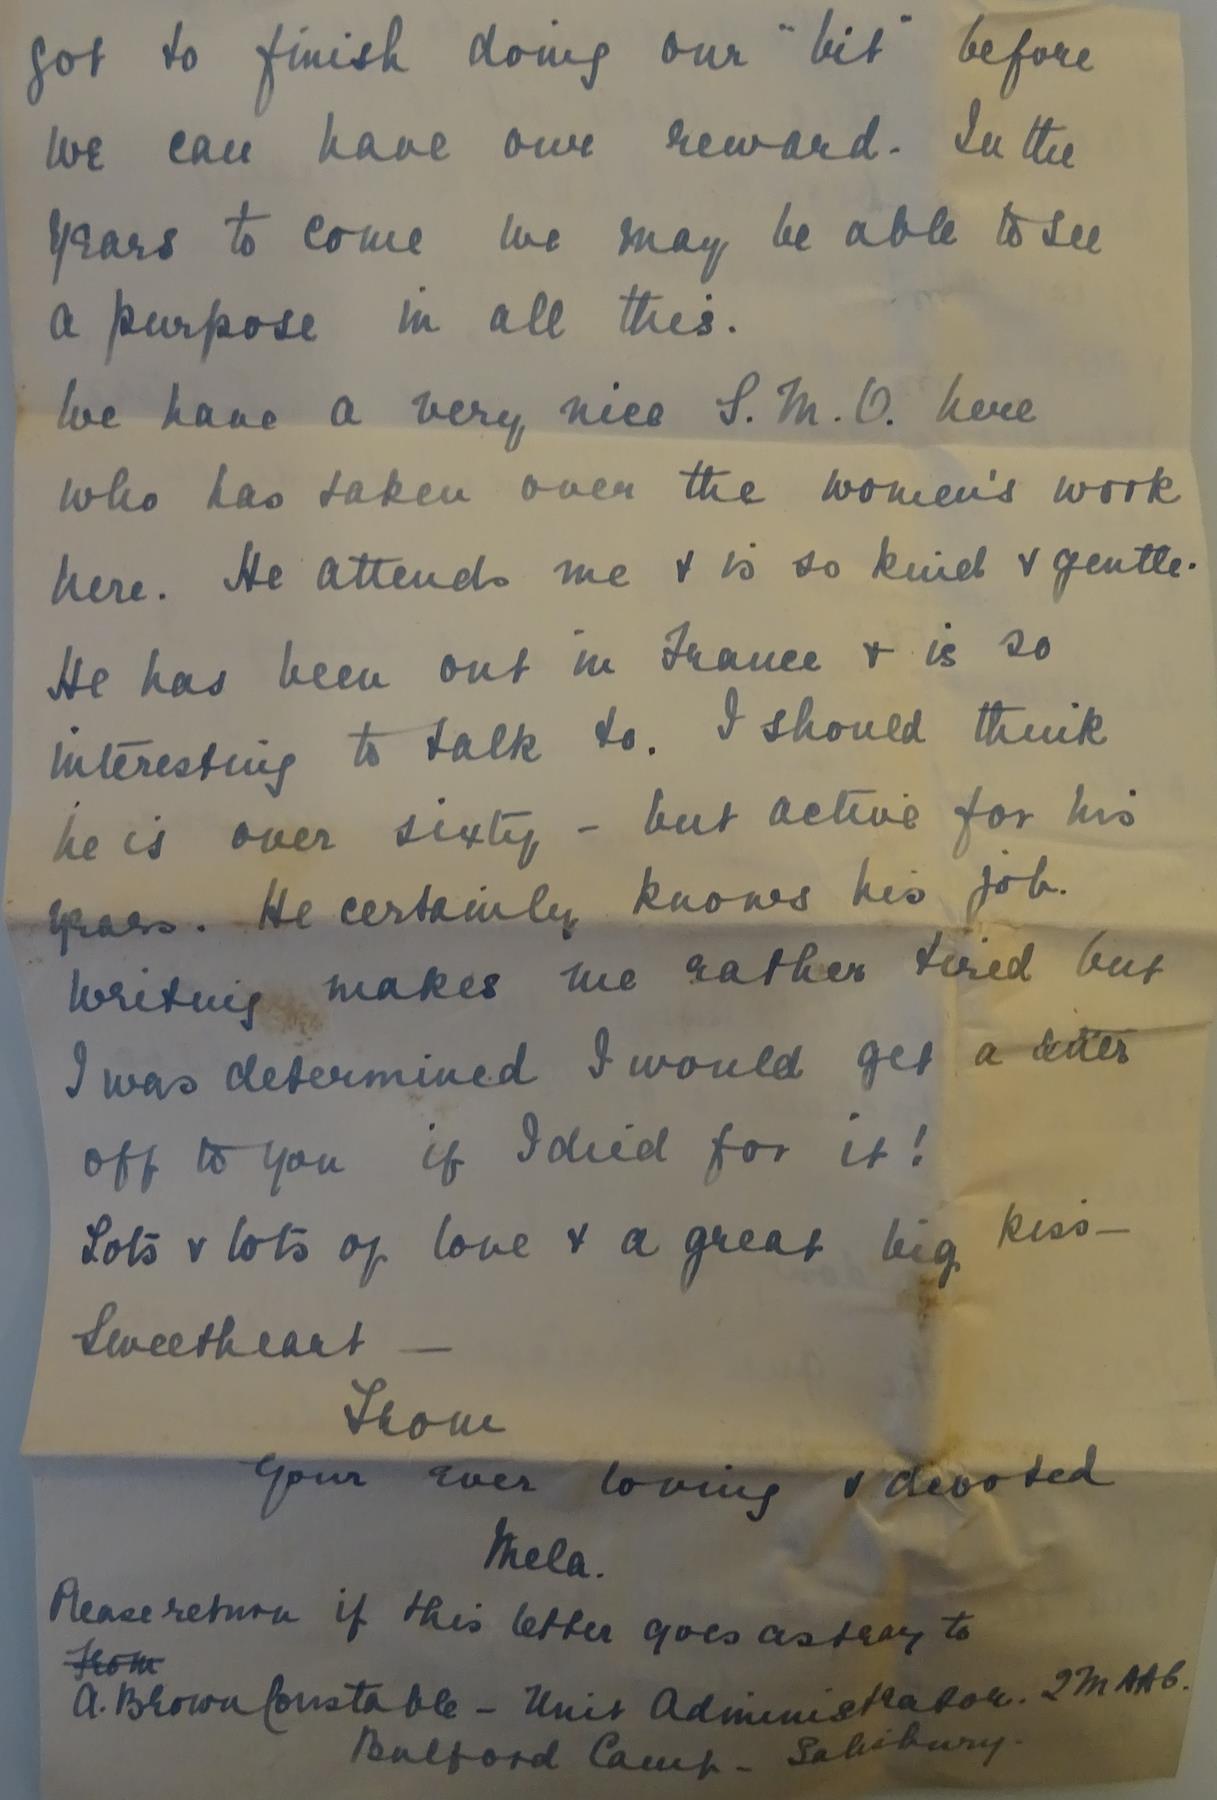 got to finish doing our "bit" before
we can have our reward. In the
years to come we may be able to see
a purpose in all this.
We have a very nice S.M.O. here
who has taken over the women's work
here. He attends me & is so kind & gentle.
He has been out in France & is so
interesting to talk to. I should think
he is over sixty - but active for his
years. He certainly knows his job.
Writing makes me rather tired but
I was determined I would get a letter
off to you if I died for it!
Lots & lots of love & a great big kiss—
Sweetheart —
From
Your ever loving & devoted
Mela.
Please return if this letter goes astray to
From
A. Brown Constable - Unit Administrator. QMAAC.
Bulford Camp - Salisbury.